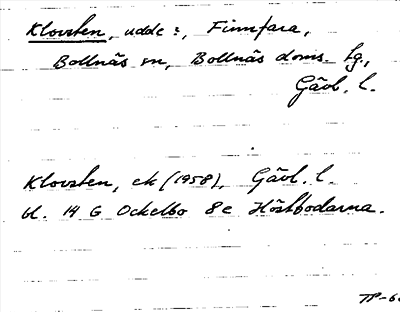 Klovsten, udde :, Finnfara,
Bollnäs sn, Bollnäs doms. tg.,
Gävl. l.
Klovsten, ek (1958), Gävl. l.
bl. 14 G Ockelbo 8e Höstbodarna.